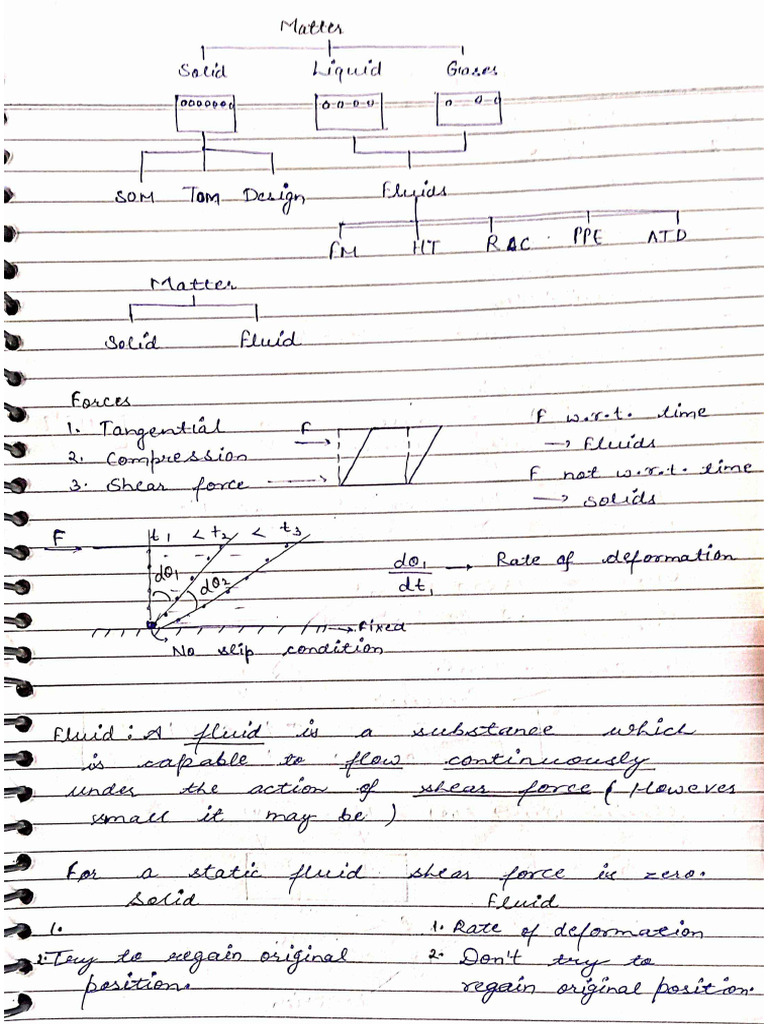 Matter
Solid Liquid Gases
SOM TOM Design Fluids
FM HT RAC PPE ATD
Matter
Solid Fluid
Forces
1. Tangential F
2. Compression
3. Shear force
F w.r.t. time
→ Fluids
F not w.r.t. time
→ Solids
F t1 < t2 < t3
dθ1 dθ2
dθ1/dt1 → Rate of deformation
Fixed
No slip condition
Fluid: A fluid is a substance which
is capable to flow continuously
under the action of shear force (However
small it may be)
For a static fluid shear force is zero.
Solid Fluid
1. 1. Rate of deformation
2. Try to regain original 2. Don't try to
position. regain original position.